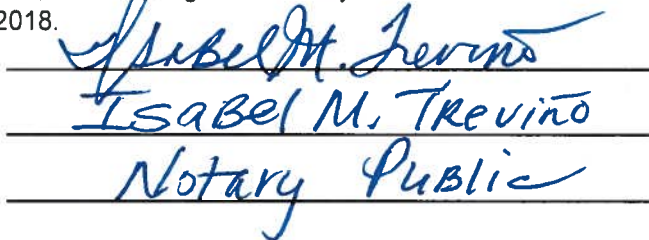 2018.
Isabel M. Treviño
Isabel M. Treviño
Notary Public